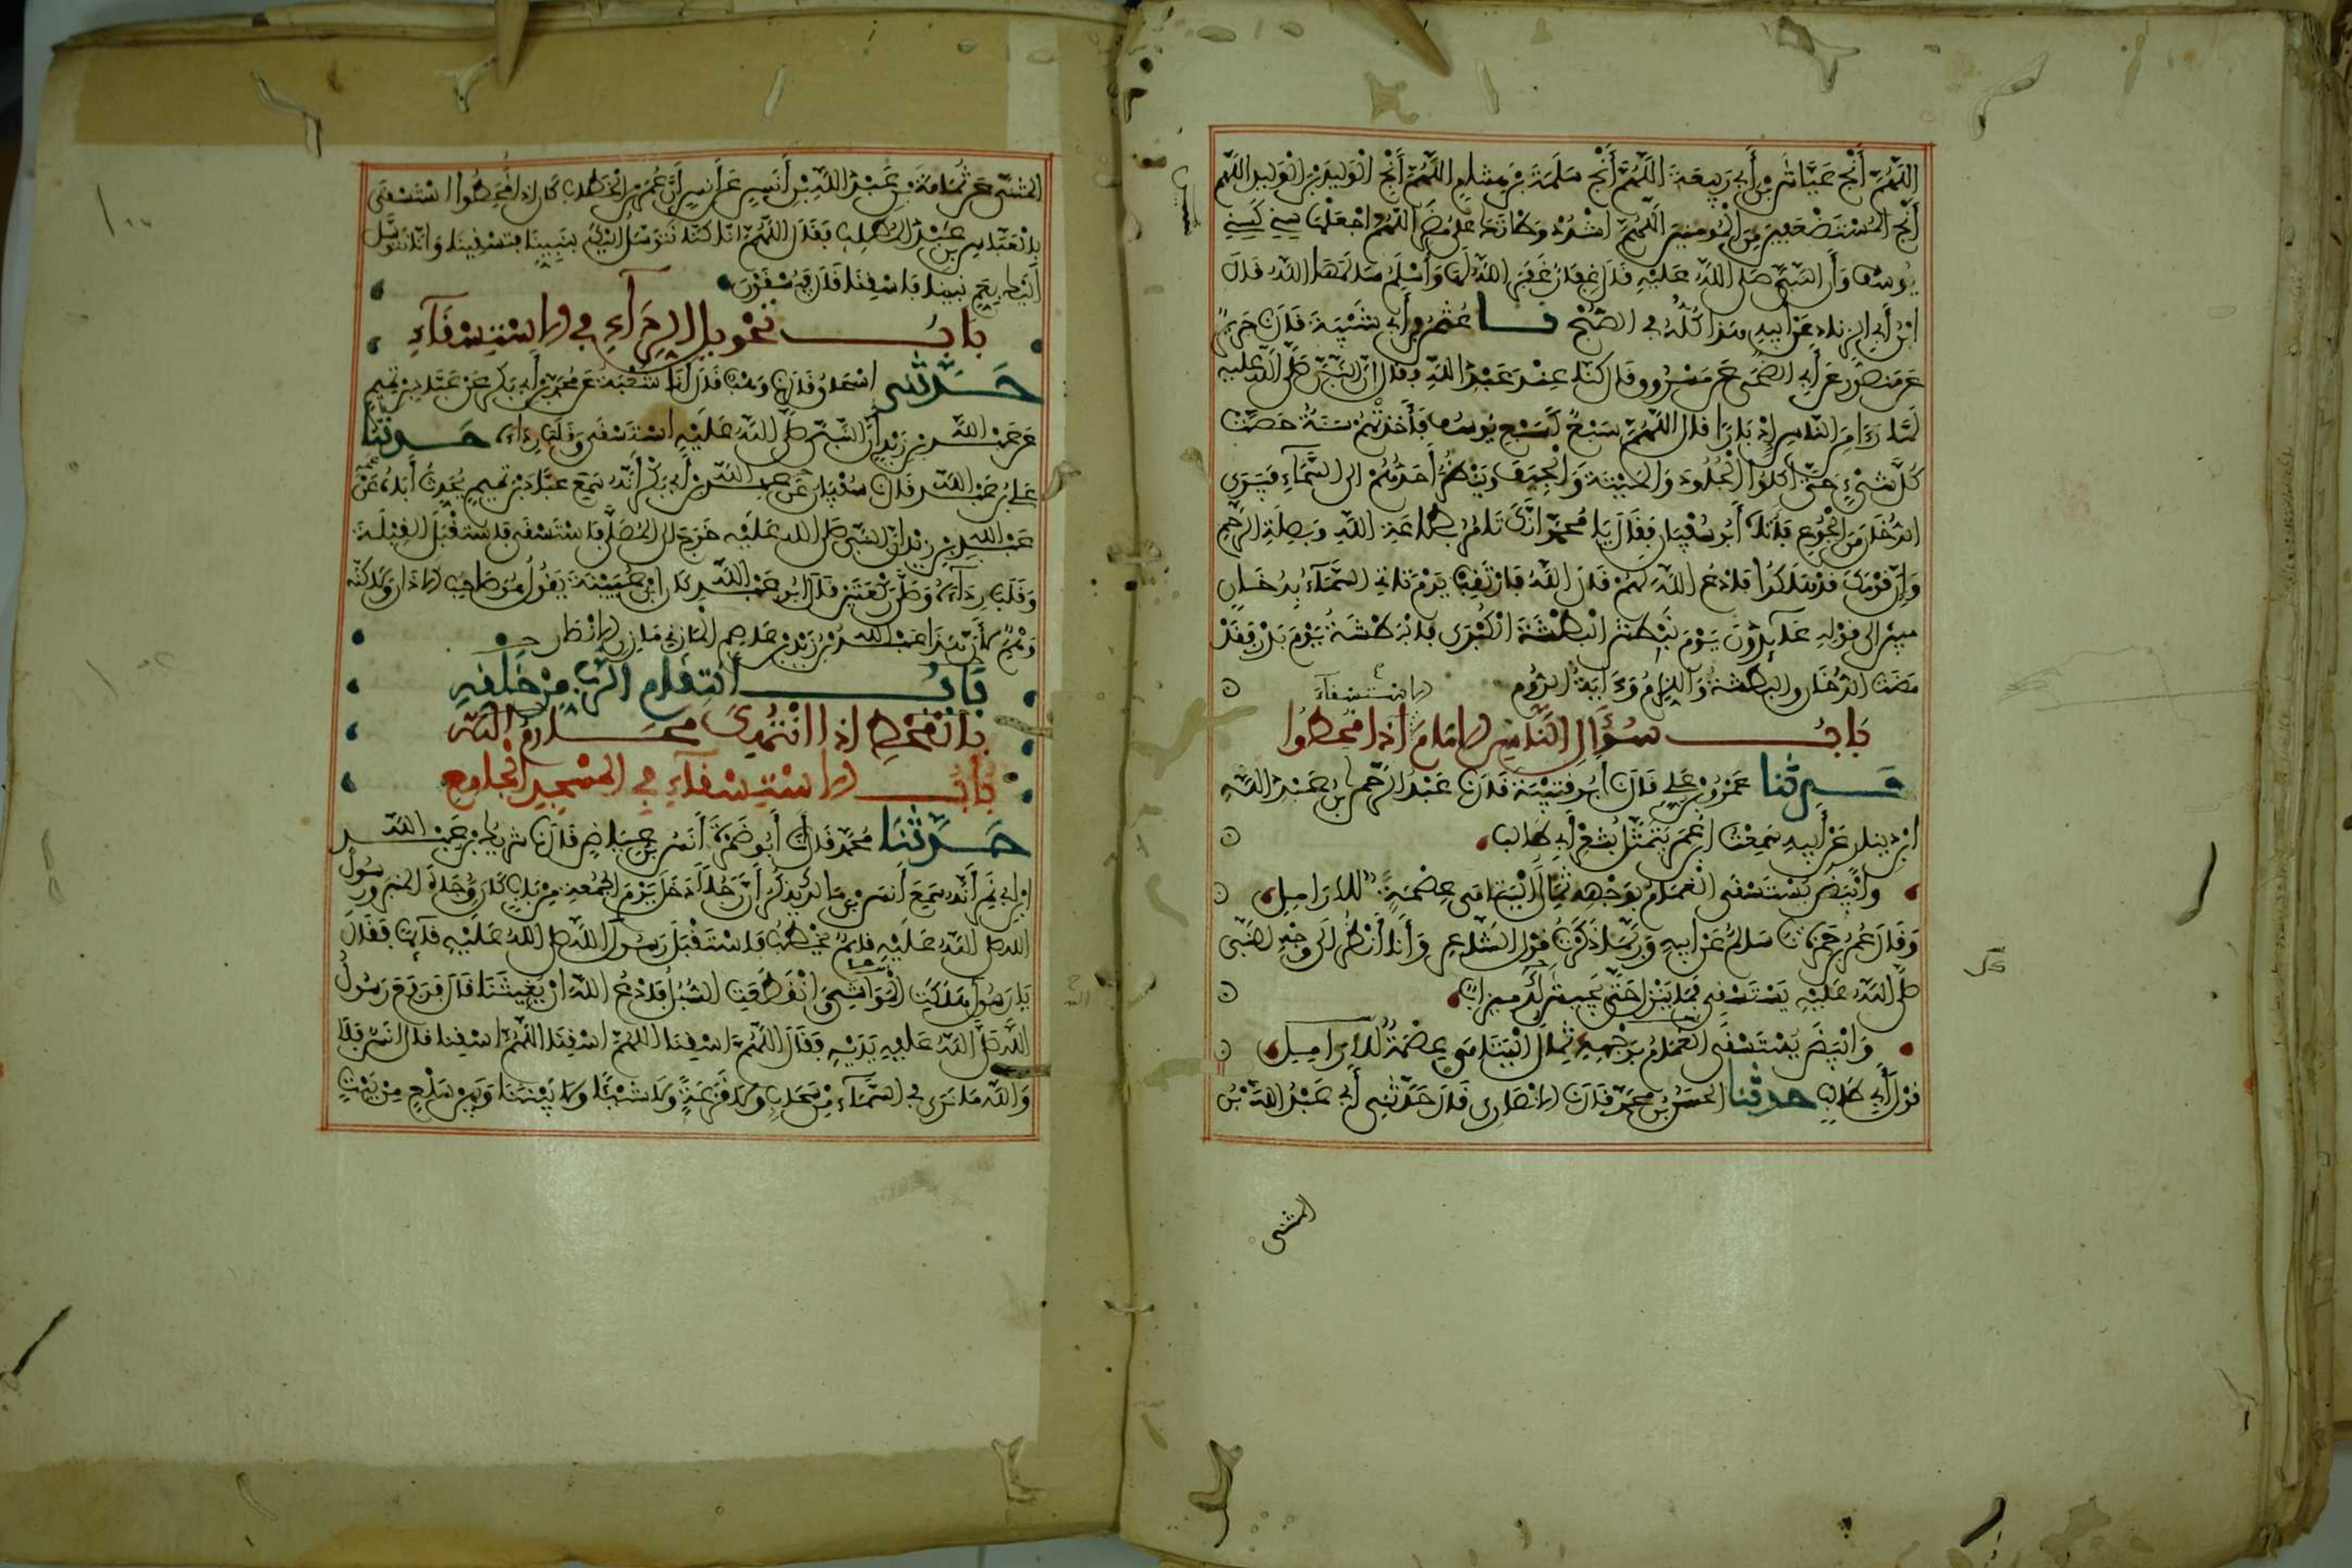 اللَّهُمَّ أَنْجِ عَيَّاشَ بْنَ أَبِي رَبِيعَةَ اللَّهُمَّ أَنْجِ سَلَمَةَ بْنَ هِشَامٍ اللَّهُمَّ أَنْجِ الْوَلِيدَ بْنَ الْوَلِيدِ اللَّهُمَّ
أَنْجِ الْمُسْتَضْعَفِينَ مِنَ الْمُؤْمِنِينَ اللَّهُمَّ اشْدُدْ وَطْأَتَكَ عَلَى مُضَرَ اللَّهُمَّ اجْعَلْهَا سِنِينَ كَسِنِي
يُوسُفَ وَأَنَّ النَّبِيَّ صَلَّى اللَّهُ عَلَيْهِ قَالَ غِفَارُ غَفَرَ اللَّهُ لَهَا وَأَسْلَمُ سَالَمَهَا اللَّهُ قَالَ
ابْنُ أَبِي الزِّنَادِ عَنْ أَبِيهِ هَذَا كُلُّهُ فِي الصُّبْحِ نا عُثْمَانُ بْنُ أَبِي شَيْبَةَ قَالَ نا جَرِيرٌ
عَنْ مَنْصُورٍ عَنْ أَبِي الضُّحَى عَنْ مَسْرُوقٍ قَالَ كُنَّا عِنْدَ عَبْدِ اللَّهِ فَقَالَ إِنَّ النَّبِيَّ صَلَّى اللَّهُ عَلَيْهِ
لَمَّا رَءَا مِنَ النَّاسِ إِدْبَارًا قَالَ اللَّهُمَّ سَبْعٌ كَسَبْعِ يُوسُفَ فَأَخَذَتْهُمْ سَنَةٌ حَصَّتْ
كُلَّ شَيْءٍ حَتَّى أَكَلُوا الْجُلُودَ وَالْمَيْتَةَ وَالْجِيَفَ وَيَنْظُرُ أَحَدُهُمْ إِلَى السَّمَاءِ فَيَرَى
الدُّخَانَ مِنَ الْجُوعِ فَأَتَاهُ أَبُو سُفْيَانَ فَقَالَ يَا مُحَمَّدُ إِنَّكَ تَأْمُرُ بِطَاعَةِ اللَّهِ وَبِصِلَةِ الرَّحِمِ
وَإِنَّ قَوْمَكَ قَدْ هَلَكُوا فَادْعُ اللَّهَ لَهُمْ قَالَ اللَّهُ فَارْتَقِبْ يَوْمَ تَأْتِي السَّمَآءُ بِدُخَانٍ
مُبِينٍ إِلَى قَوْلِهِ عَآئِدُونَ يَوْمَ نَبْطِشُ الْبَطْشَةَ الْكُبْرَى فَالْبَطْشَةُ يَوْمَ بَدْرٍ فَقَدْ
مَضَتِ الدُّخَانُ وَالْبَطْشَةُ وَاللِّزَامُ وَءَايَةُ الرُّومِ
الِاسْتِسْقَآءَ
بَابُ سُؤَالِ النَّاسِ الْإِمَامَ إِذَا قُحِطُوا
حَدَّثَنَا عَمْرُو بْنُ عَلِيٍّ قَالَ نا أَبُو قُتَيْبَةَ قَالَ نا عَبْدُ الرَّحْمَنِ بْنُ عَبْدِ اللَّهِ
ابْنِ دِينَارٍ عَنْ أَبِيهِ سَمِعْتُ ابْنَ عُمَرَ يَتَمَثَّلُ بِشِعْرِ أَبِي طَالِبٍ
وَأَبْيَضَ يُسْتَسْقَى الْغَمَامُ بِوَجْهِهِ ثِمَالُ الْيَتَامَى عِصْمَةٌ لِلْأَرَامِلِ
وَقَالَ عُمَرُ بْنُ حَمْزَةَ نا سَالِمٌ عَنْ أَبِيهِ وَرُبَّمَا ذَكَرْتُ قَوْلَ الشَّاعِرِ وَأَنَا أَنْظُرُ إِلَى وَجْهِ النَّبِيِّ
صَلَّى اللَّهُ عَلَيْهِ يَسْتَسْقِي فَمَا يَنْزِلُ حَتَّى يَجِيشَ كُلُّ مِيزَابٍ
وَأَبْيَضَ يُسْتَسْقَى الْغَمَامُ بِوَجْهِهِ ثِمَالُ الْيَتَامَى عِصْمَةٌ لِلْأَرَامِلِ
قَوْلُ أَبِي طَالِبٍ حَدَّثَنَا الْحَسَنُ بْنُ مُحَمَّدٍ قَالَ نا الْأَنْصَارِي قَالَ حَدَّثَنِي أَبِي عَبْدُ اللَّهِ بْنُ
المثنى
الْمُثَنَّى عَنْ ثُمَامَةَ بْنِ عَبْدِ اللَّهِ بْنِ أَنَسٍ عَنْ أَنَسٍ أَنَّ عُمَرَ بْنَ الْخَطَّابِ كَانَ إِذَا قُحِطُوا اسْتَسْقَى
بِالْعَبَّاسِ بْنِ عَبْدِ الْمُطَّلِبِ فَقَالَ اللَّهُمَّ إِنَّا كُنَّا نَتَوَسَّلُ إِلَيْكَ بِنَبِيِّنَا فَتَسْقِينَا وَإِنَّا نَتَوَسَّلُ
إِلَيْكَ بِعَمِّ نَبِيِّنَا فَاسْقِنَا قَالَ فَيُسْقَوْنَ
بَابُ تَحْوِيلِ الرِّدَآءِ فِي الِاسْتِسْقَآءِ
حَدَّثَنِي إِسْحَاقُ قَالَ نا وَهْبٌ قَالَ أَنَا شُعْبَةُ عَنْ مُحَمَّدِ بْنِ أَبِي بَكْرٍ عَنْ عَبَّادِ بْنِ تَمِيمٍ
عَنْ عَبْدِ اللَّهِ بْنِ زَيْدٍ أَنَّ النَّبِيَّ صَلَّى اللَّهُ عَلَيْهِ اسْتَسْقَى وَقَلَبَ رِدَاءَهُ حَدَّثَنَا
عَلِيُّ بْنُ عَبْدِ اللَّهِ قَالَ نا سُفْيَانُ عَنْ عَبْدِ اللَّهِ بْنِ أَبِي بَكْرٍ أَنَّهُ سَمِعَ عَبَّادَ بْنَ تَمِيمٍ يُحَدِّثُ أَبَاهُ عَنْ عَمِّهِ
عَبْدِ اللَّهِ بْنِ زَيْدٍ أَنَّ النَّبِيَّ صَلَّى اللَّهُ عَلَيْهِ خَرَجَ إِلَى الْمُصَلَّى فَاسْتَسْقَى فَاسْتَقْبَلَ الْقِبْلَةَ
وَقَلَبَ رِدَآءَهُ وَصَلَّى رَكْعَتَيْنِ قَالَ أَبُو عَبْدِ اللَّهِ كَانَ ابْنُ عُيَيْنَةَ يَقُولُ هُوَ صَاحِبُ الْأَذَانِ وَلَكِنَّهُ
وَهِمَ لِأَنَّ هَذَا عَبْدُ اللَّهِ بْنُ زَيْدِ بْنِ عَاصِمٍ الْمَازِنِيُّ مَازِنُ الْأَنْصَارِ
بَابُ انْتِقَامِ الرَّبِّ مِنْ خَلْقِهِ
بِالْقَحْطِ إِذَا انْتُهِكَ مَحَارِمُ اللَّهِ
بَابُ الِاسْتِسْقَآءِ فِي الْمَسْجِدِ الْجَامِعِ
حَدَّثَنَا مُحَمَّدٌ قَالَ نا أَبُو ضَمْرَةَ أَنَسُ بْنُ عِيَاضٍ قَالَ نا شَرِيكُ بْنُ عَبْدِ اللَّهِ
ابْنِ أَبِي نَمِرٍ أَنَّهُ سَمِعَ أَنَسَ بْنَ مَالِكٍ يَذْكُرُ أَنَّ رَجُلًا دَخَلَ يَوْمَ الْجُمُعَةِ مِنْ بَابٍ كَانَ وُجَاهَ الْمِنْبَرِ وَرَسُولُ
اللَّهِ صَلَّى اللَّهُ عَلَيْهِ قَائِمٌ يَخْطُبُ فَاسْتَقْبَلَ رَسُولَ اللَّهِ صَلَّى اللَّهُ عَلَيْهِ قَآئِمًا فَقَالَ
يَا رَسُولَ اللَّهِ هَلَكَتِ الْمَوَاشِي وَانْقَطَعَتِ السُّبُلُ فَادْعُ اللَّهَ أَنْ يُغِيثَنَا قَالَ فَرَفَعَ رَسُولُ
اللَّهِ صَلَّى اللَّهُ عَلَيْهِ يَدَيْهِ فَقَالَ اللَّهُمَّ اسْقِنَا اللَّهُمَّ اسْقِنَا اللَّهُمَّ اسْقِنَا قَالَ أَنَسٌ فَلَا
وَاللَّهِ مَا نَرَى فِي السَّمَآءِ مِنْ سَحَابٍ وَلَا قَزَعَةً وَلَا شَيْئًا وَلَا بَيْنَنَا وَبَيْنَ سَلْعٍ مِنْ بَيْتٍ